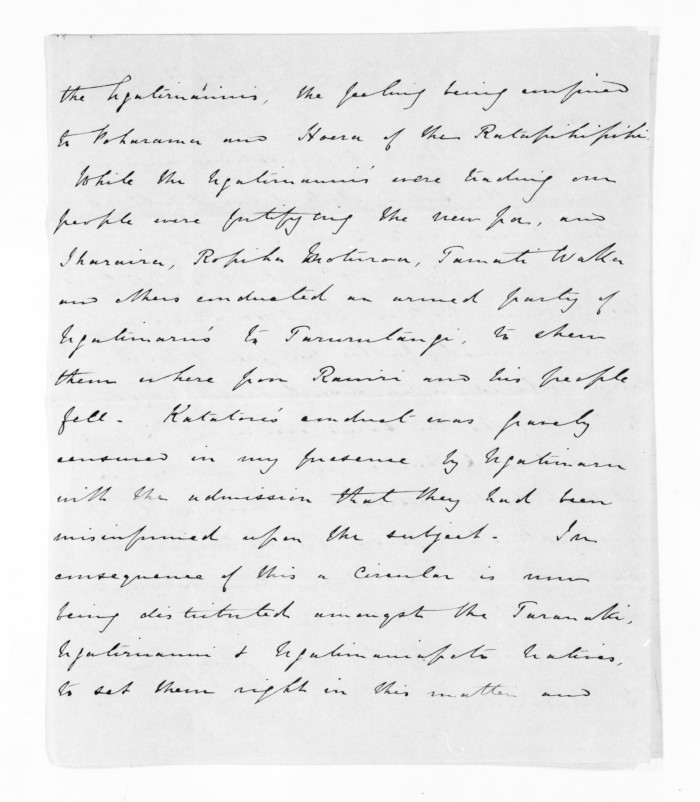 the Ngatiruanuis, the feeling being confined
to Poharama and Hoera of the Ratapihipihi.
While the Ngatiruanui's were trading our
people were fortifying the new pa, and
Iharaira, Ropiha Moturoa, Tamati Waka
and others conducted an armed party of
Ngatimaru's to Tarurutangi, to shew
them where poor Rawiri and his people
fell. Katatore's conduct was gravely
censured in my presence by Ngatimaru
with the admission that they had been
misinformed upon the subject. In
consequence of this a circular is now
being distributed amongst the Taranaki,
Ngatiruanui & Ngatimaniapoto Natives,
to set them right in this matter and